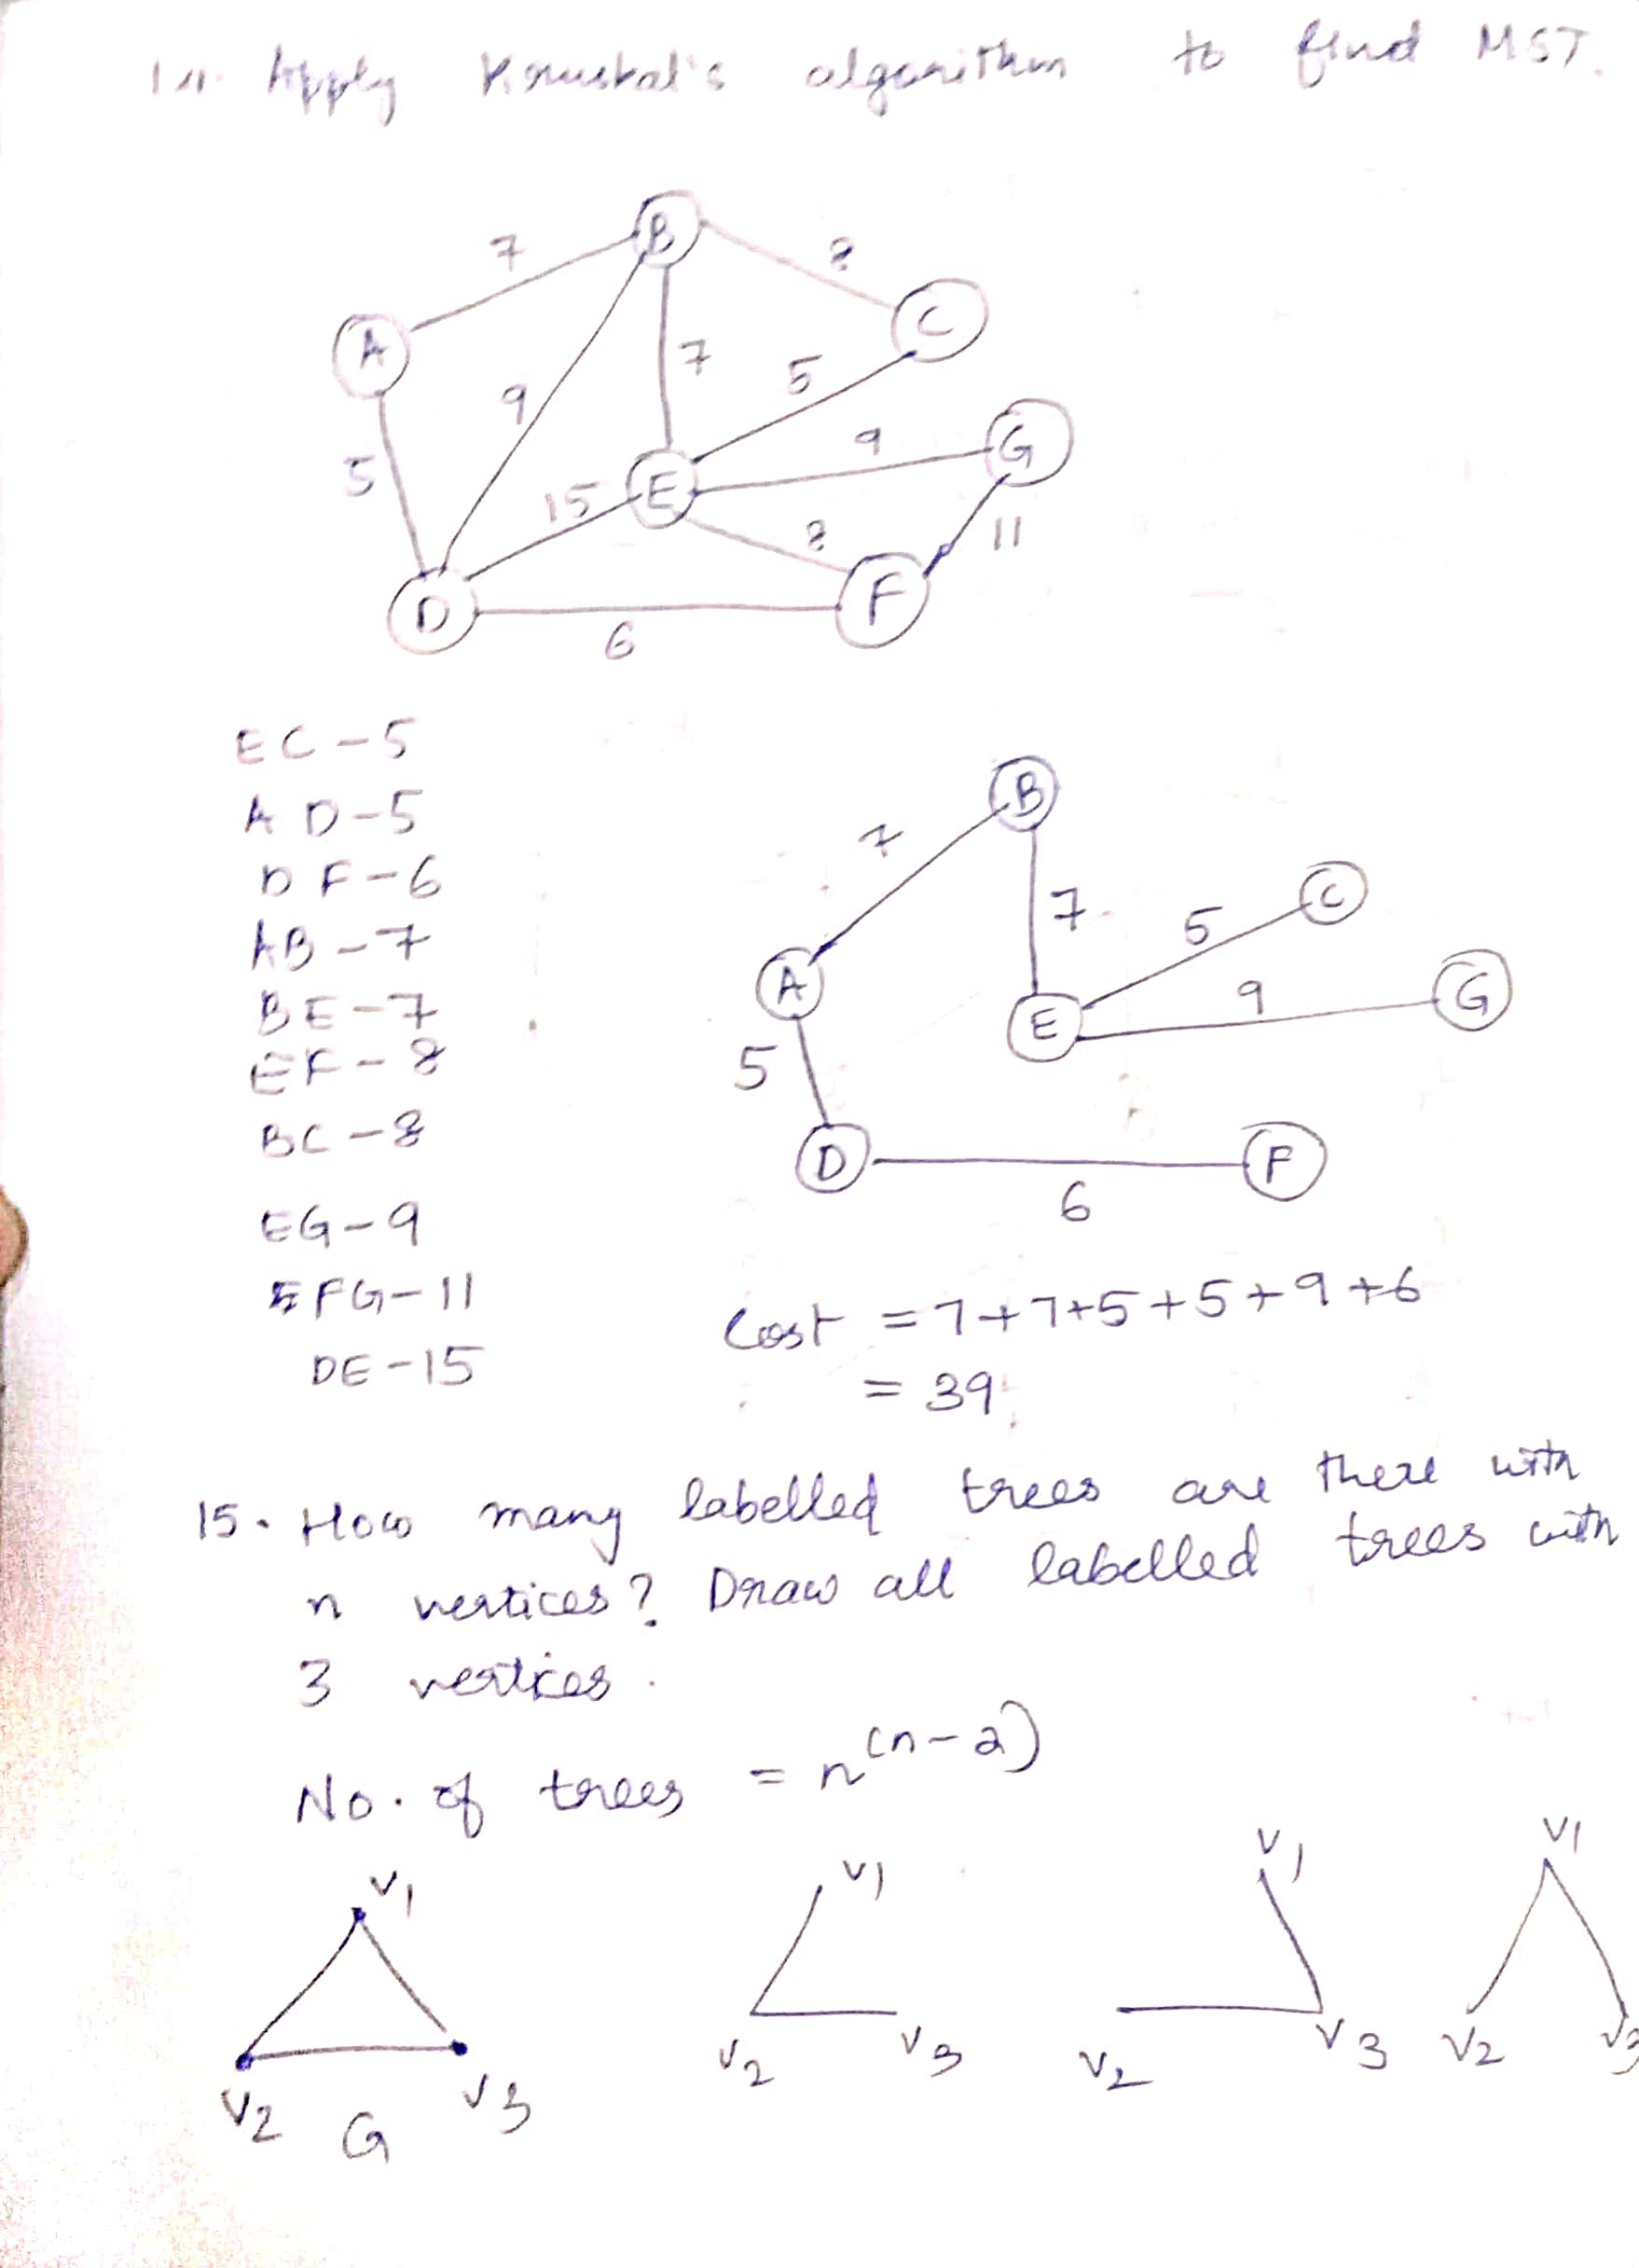 14. Apply Kruskal's algorithm to find MST.
B
7
8
C
A
9
7
5
G
9
5
15
E
8
11
F
D
6
EC-5
AD-5
DF-6
AB-7
BE-7
EF-8
BC-8
EG-9
FG-11
DE-15
B
7
C
7
5
A
G
9
E
5
D
F
6
Cost = 7+7+5+5+9+6
= 39
15. How many labelled trees are there with
n vertices? Draw all labelled trees with
3 vertices.
No. of trees = n^(n-2)
V1
V2
V3
G
V1
V2
V3
V1
V2
V3
V1
V2
V3